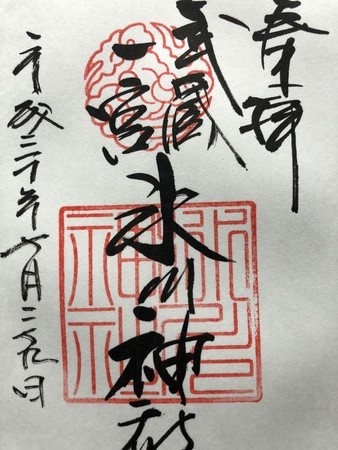 奉拝
武蔵
一宮
氷川神社
平成三十年六月二九日
氷川
神社